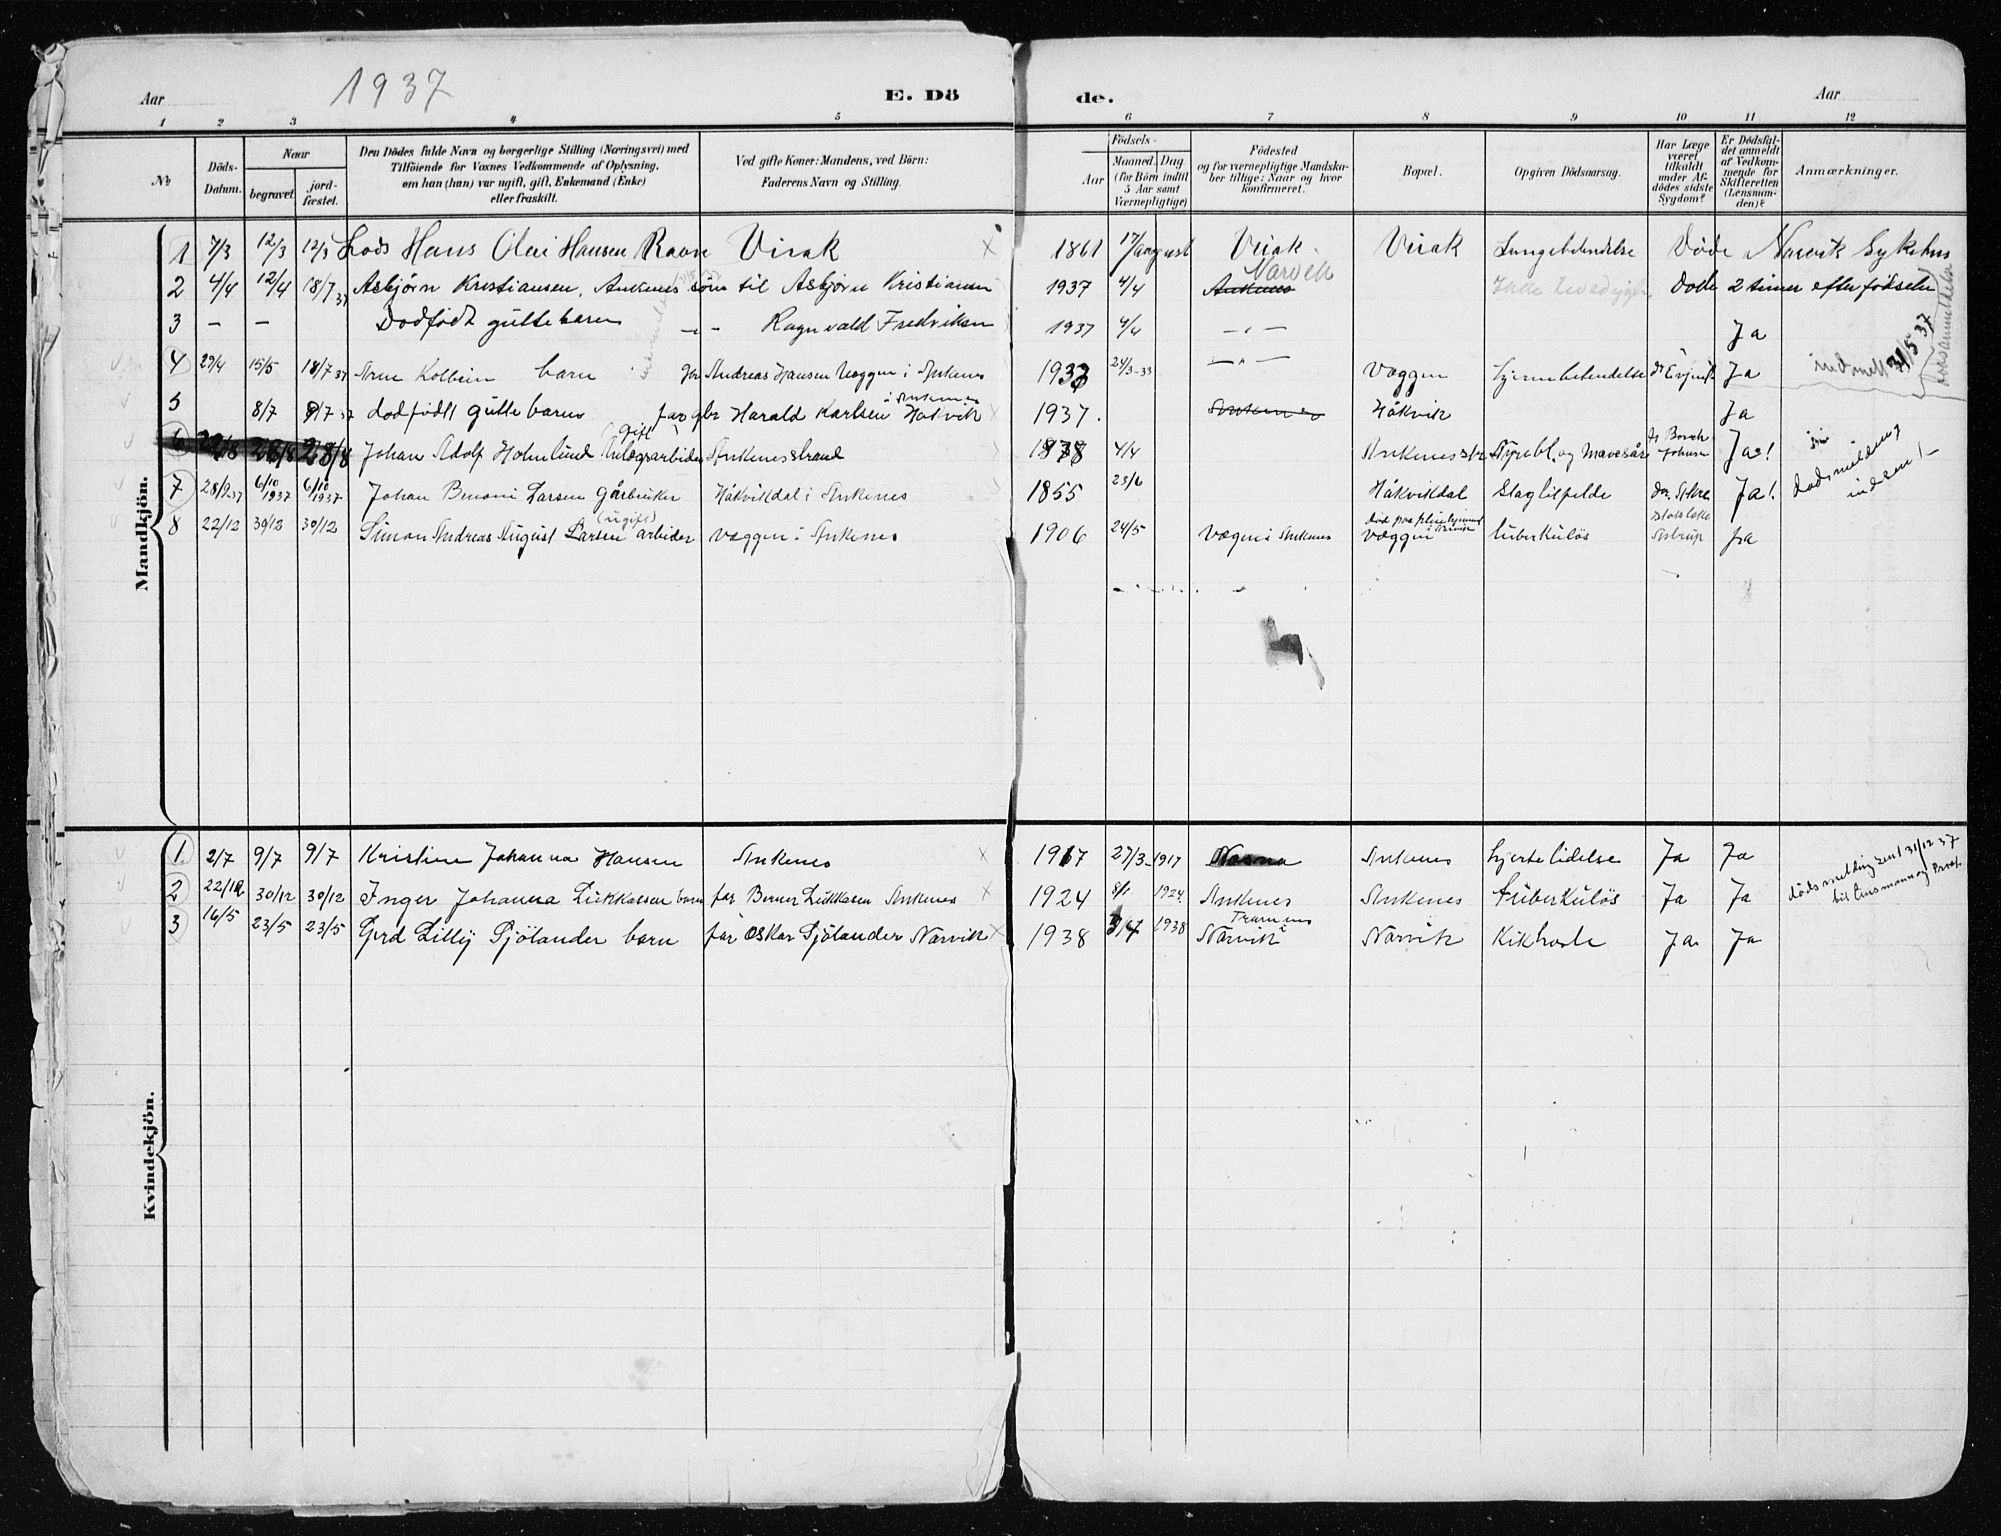 Aar 1937 E. Dö de. Aar
1 2 3 4 5 6 7 8 9 10 11 12
№
Döds-Datum.
Naar
begravet.
jordfæstet.
Den Dödes fulde Navn og borgerlige Stilling (Næringsvei) med
Tilföiende for Voxnes Vedkommende af Oplysning,
om han (hun) var ugift, gift, Enkemand (Enke)
eller fraskilt.
Ved gifte Koner: Mandens, ved Börn:
Faderens Navn og Stilling.
Födsels-
Aar
Maaned. Dag.
(for Börn indtil
5 Aar samt
Værnepligtige)
Födested
og for værnepligtige Mandska-
ber tillige: Naar og hvor
konfirmeret.
Bopæl.
Opgiven Dödsaarsag.
Har Læge
været
tilkaldt
under Af-
dödes sidste
Sygdom?
Er Dödsfal-
det anmeldt
af Vedkom-
mende for
Skifteretten
(Lensman-
den)?
Anmærkninger.
Mandkjön.
1 7/3 12/3 12/3 Lods Hans Olai Hansen Ravn Virak 1861 17/august Virak Virak Lungebetendelse Döde Narvik Sykehus
2 4/4 12/4 18/7 37 Asbjørn Kristiansen, Ankenes søn til Asbjørn Kristiansen 1937 4/4 Ankenes Narvik Döde 2 timer efter födselen
3 — — Dodfödt guttebarn — „ — Ragnvald Fredriksen 1937 4/4 — „ — Ja
4 29/4 15/5 18/7 37 Arne Kolbein barn Andreas Hansen Væggen i Ankenes 1937 24/3-33 — „ — Væggen hjernebetendelse Ja 31/5 37
5 8/7 8/7 37 dodfödt guttebarn far gbr Harald Karlsen Håkvik i Ankenes 1937. Ankenes Håkvik Ja
6 22/8 28/8 28/8 Johan Adolf Holmlund (gift) Anlegsarbeider Ankenesstrand 1878 4/4 Ankenesstr og Mavesår Ja!
dodsmelding
indsent
7 28/9 37 6/10 1937 6/10 1937 Johan Benoni Larsen gårbruker Håkvikdal i Ankenes 1855 23/6 Håkvikdal Slagtilfelde Ja!
8 22/12 30/12 30/12 Simon Andreas August Larsen (ugift) arbeider Væggen i Ankenes 1906 24/5 Vægen i Ankenes Væggen tuberkuløs Ja
Kvindekjön.
1 2/7 9/7 9/7 Kristine Johanna Hansen Ankenes 1917 27/3-1917 Ankenes hjertelidelse Ja Ja
dödsmelding sent 31/12 37
til Lensmann og
2 22/12 30/12 30/12 Inger Johanna Lukkassen barn far Berner Lukkasen Ankenes 1924 8/1 1924 Ankenes Ankenes Tuberkuløs Ja Ja
3 16/5 23/5 23/5 Gerd Lilly Sjölander barn far Oskar Sjölander Narvik 1938 3/4 1938 Narvik Narvik Kikhoste Ja Ja